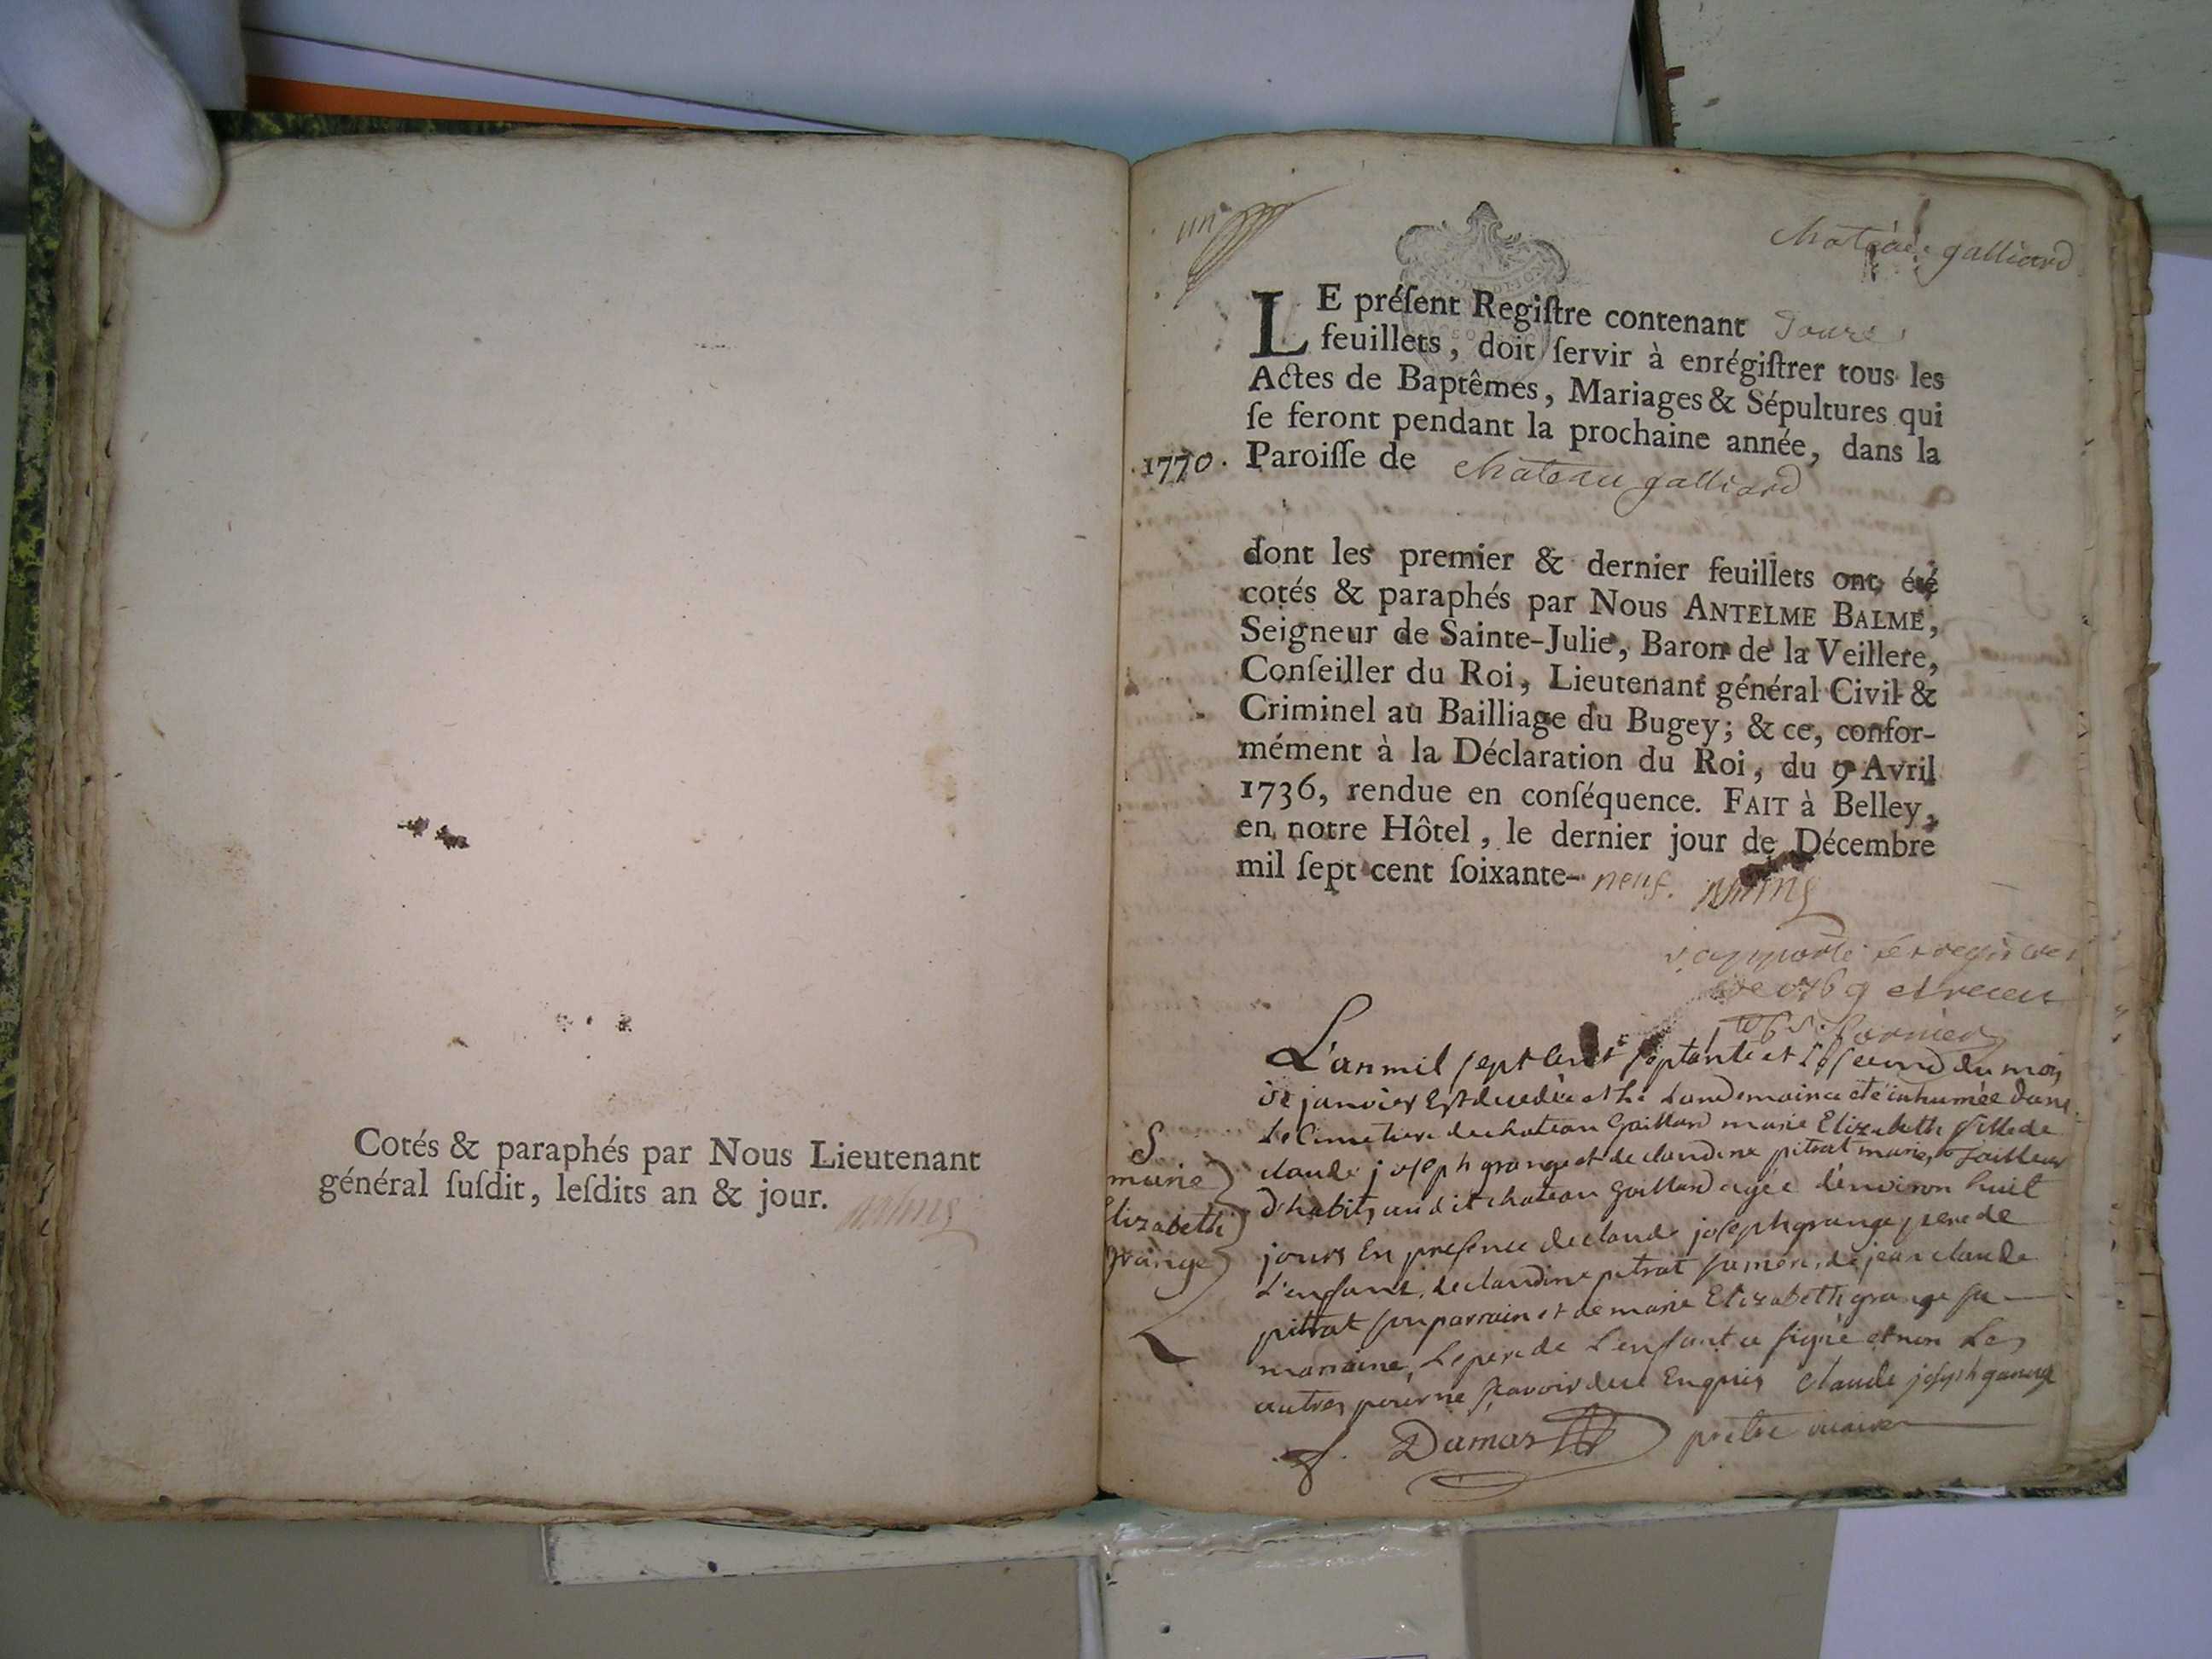 Cotés & paraphés par Nous Lieutenant
général suſdit, leſdits an & jour.
un
chateau galliard
LE préſent Regiſtre contenant douze
feuillets, doit ſervir à enrégiſtrer tous les
Actes de Baptêmes, Mariages & Sépultures qui
ſe feront pendant la prochaine année, dans la
.1770. Paroiſſe de chateau galliard
dont les premier & dernier feuillets ont été
cotés & paraphés par Nous ANTELME BALME,
Seigneur de Sainte-Julie, Baron de la Veillere,
Conſeiller du Roi, Lieutenant général Civil &
Criminel au Bailliage du Bugey; & ce, confor-
mément à la Déclaration du Roi, du 9 Avril
1736, rendue en conſéquence. FAIT à Belley,
en notre Hôtel, le dernier jour de Décembre
mil ſept cent ſoixante- neuf.
raporté les registres
de 1769 et receu
L'an mil sept cent septante et le second du mois
de janvier Est decedée et le Landemain a eté inhumée dans
Le Cimetiere de chateau Gaillard marie Elizabeth fille de
claude joseph grange et de claudine pitrat mariés tailleur
d'habits audit chateau Gaillard agée d'environ huit
jours En presence de claude joseph grange pere de
L'enfant, de claudine pitrat sa mere, de jean claude
pitrat son parrain et de marie Elizabeth grange sa
marraine, Le pere de L'enfant a signé et non Les
autres pour ne sçavoir de ce Enquis claude joseph grange
Dumas prêtre vicaire
S
marie
Elizabeth
grange